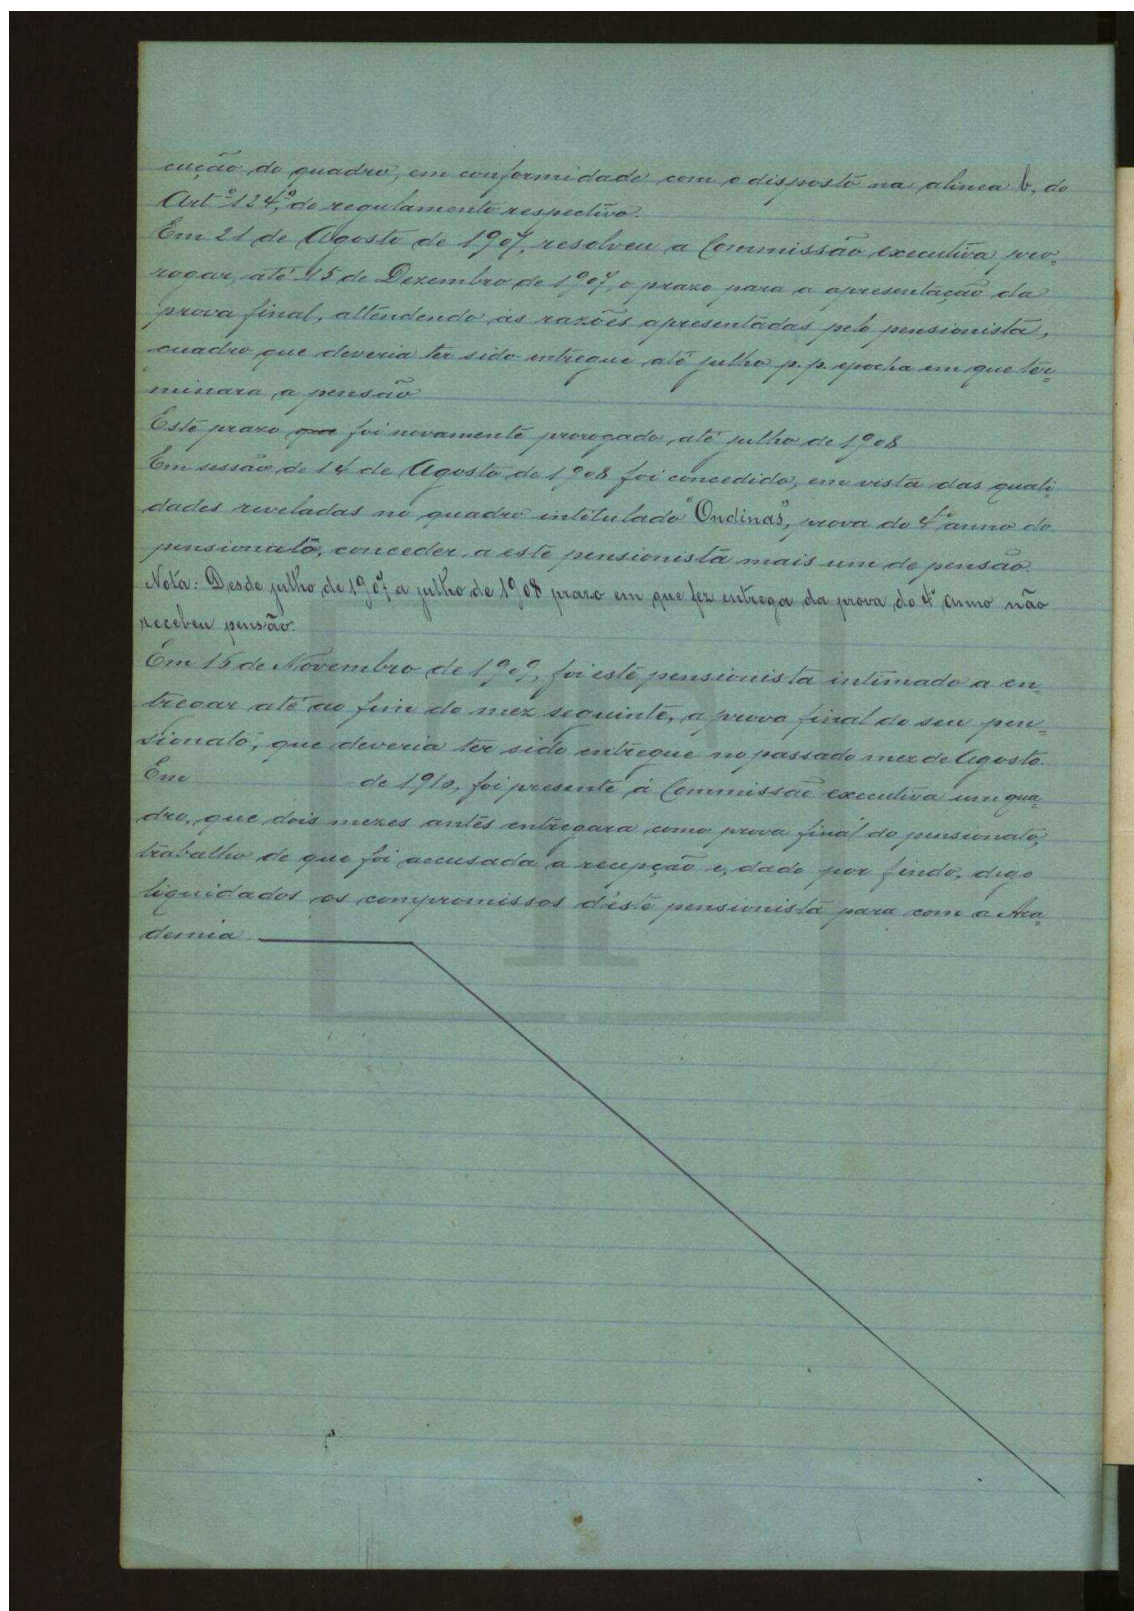 cução do quadro, em conformidade com o disposto na alinea b, do
Artº 124º, do regulamento respectivo.
Em 21 de Agosto de 1907, resolveu a Commissão executiva pro-
rogar, até 15 de Dezembro de 1907, o prazo para a apresentação da
prova final, attendendo ás razões apresentadas pelo pensionista,
cuadro que deveria ter sido entregue até julho p.p. epocha em que ter-
minara a pensão
Este prazo que foi novamente prorogado, até julho de 1908
Em sessão de 14 de Agosto de 1908 foi concedido, em vista das quali-
dades reveladas no quadro intitulado "Ondinas", prova do 4º anno do
pensionato, conceder, a este pensionista mais um de pensão.
Nota: Desde julho de 1907 a julho de 1908 prazo em que fez entrega da prova do 4º anno não
recebeu pensão.
Em 15 de Novembro de 1909, foi este pensionista intimado a en-
tregar até ao fim do mez seguinte, a prova final do seu pen-
sionato, que deveria ter sido entregue no passado mez de Agosto.
Em de 1910, foi presente á Commissão executiva um qua-
dro, que dois mezes antes entregara como prova final do pensionato,
trabalho de que foi accusada a recepção e, dado por findo, digo
liquidados os compromissos d'este pensionista para com a Aca-
demia.